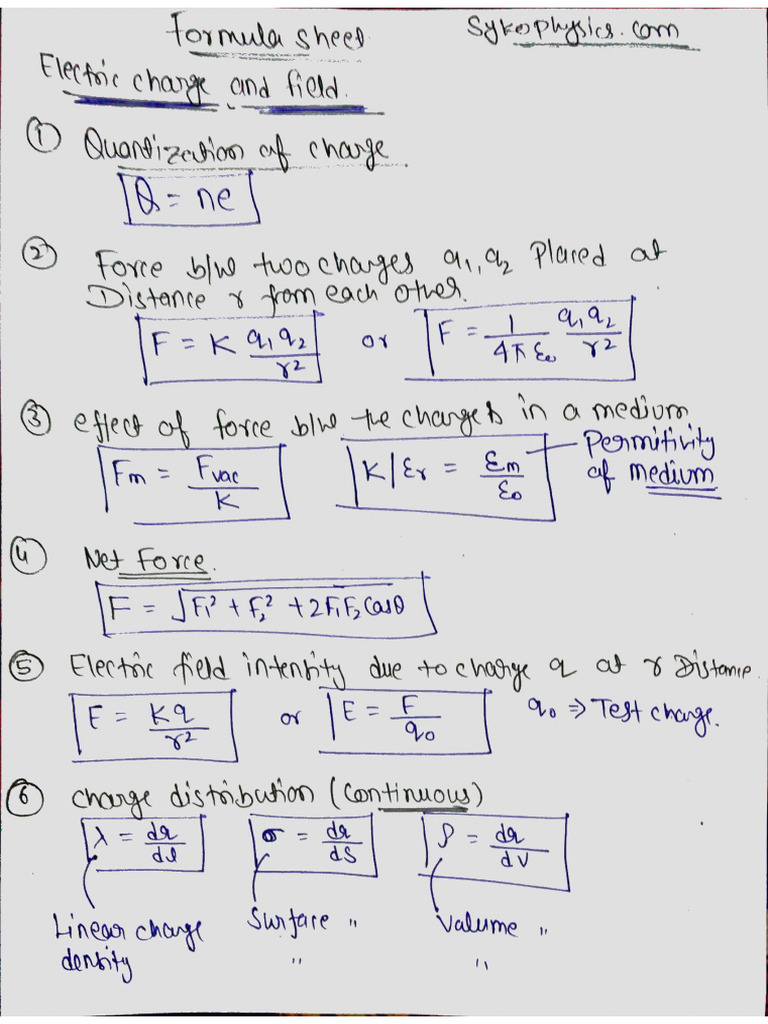 Formula sheet
Sykophysics.com
Electric charge and field.
① Quantization of charge.
Q = ne
② Force b/w two charges q₁, q₂ Placed at
Distance r from each other.
F = K q₁q₂/r² or F = 1/4πε₀ q₁q₂/r²
③ effect of force b/w the charges in a medium
Fm = Fvac/K K/εr = εm/ε₀ Permitivity
of medium
④ Net Force.
F = √F₁² + F₂² + 2F₁F₂ Cosθ
⑤ Electric field intensity due to charge q at r Distance.
E = Kq/r² or E = F/q₀ q₀ ⇒ Test charge.
⑥ charge distribution (continuous)
λ = dq/dl σ = dq/dS ρ = dq/dV
Linear charge Surface " Volume "
density " "